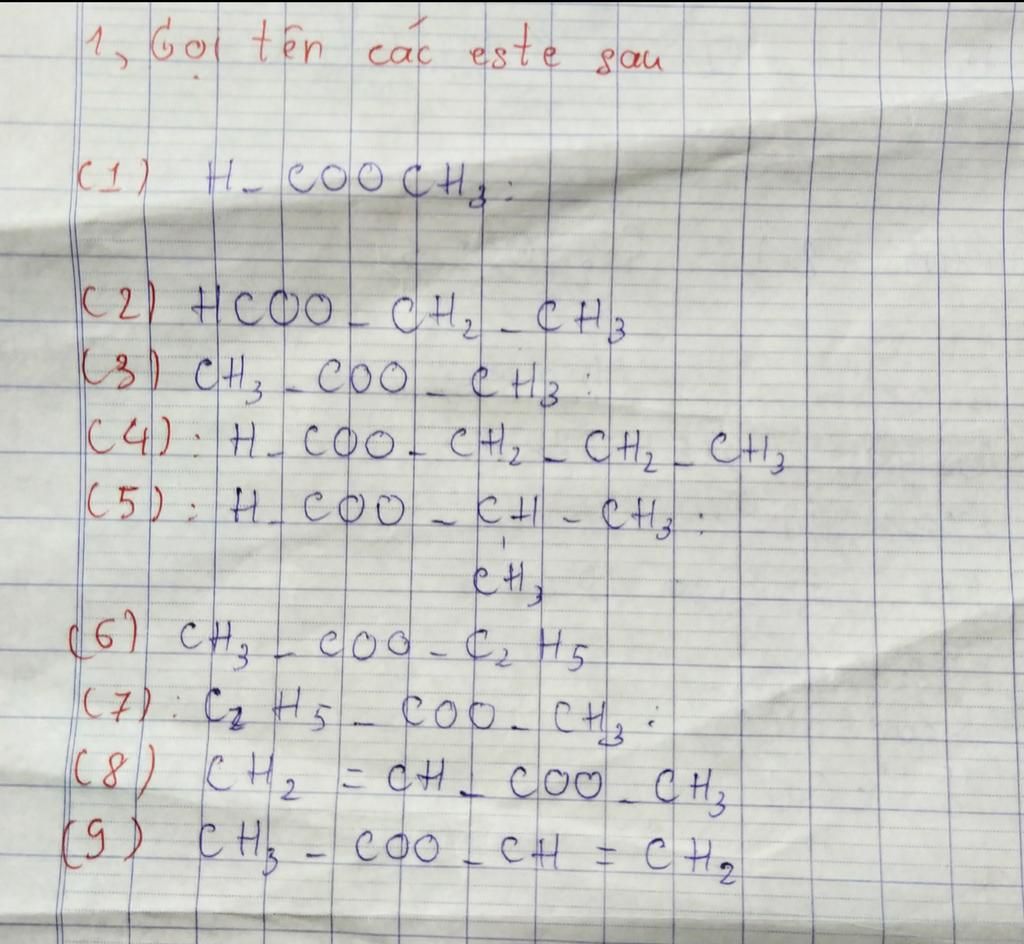 1, Gọi tên các este sau
(1) H - COOCH₃ :
(2) HCOO - CH₂ - CH₃
(3) CH₃ - COO - CH₃ :
(4) : H - COO - CH₂ - CH₂ - CH₃
(5) : H - COO - CH - CH₃ :
CH₃
(6) CH₃ - COO - C₂H₅
(7) : C₂H₅ - COO - CH₃ :
(8) CH₂ = CH - COO - CH₃
(9) CH₃ - COO - CH = CH₂